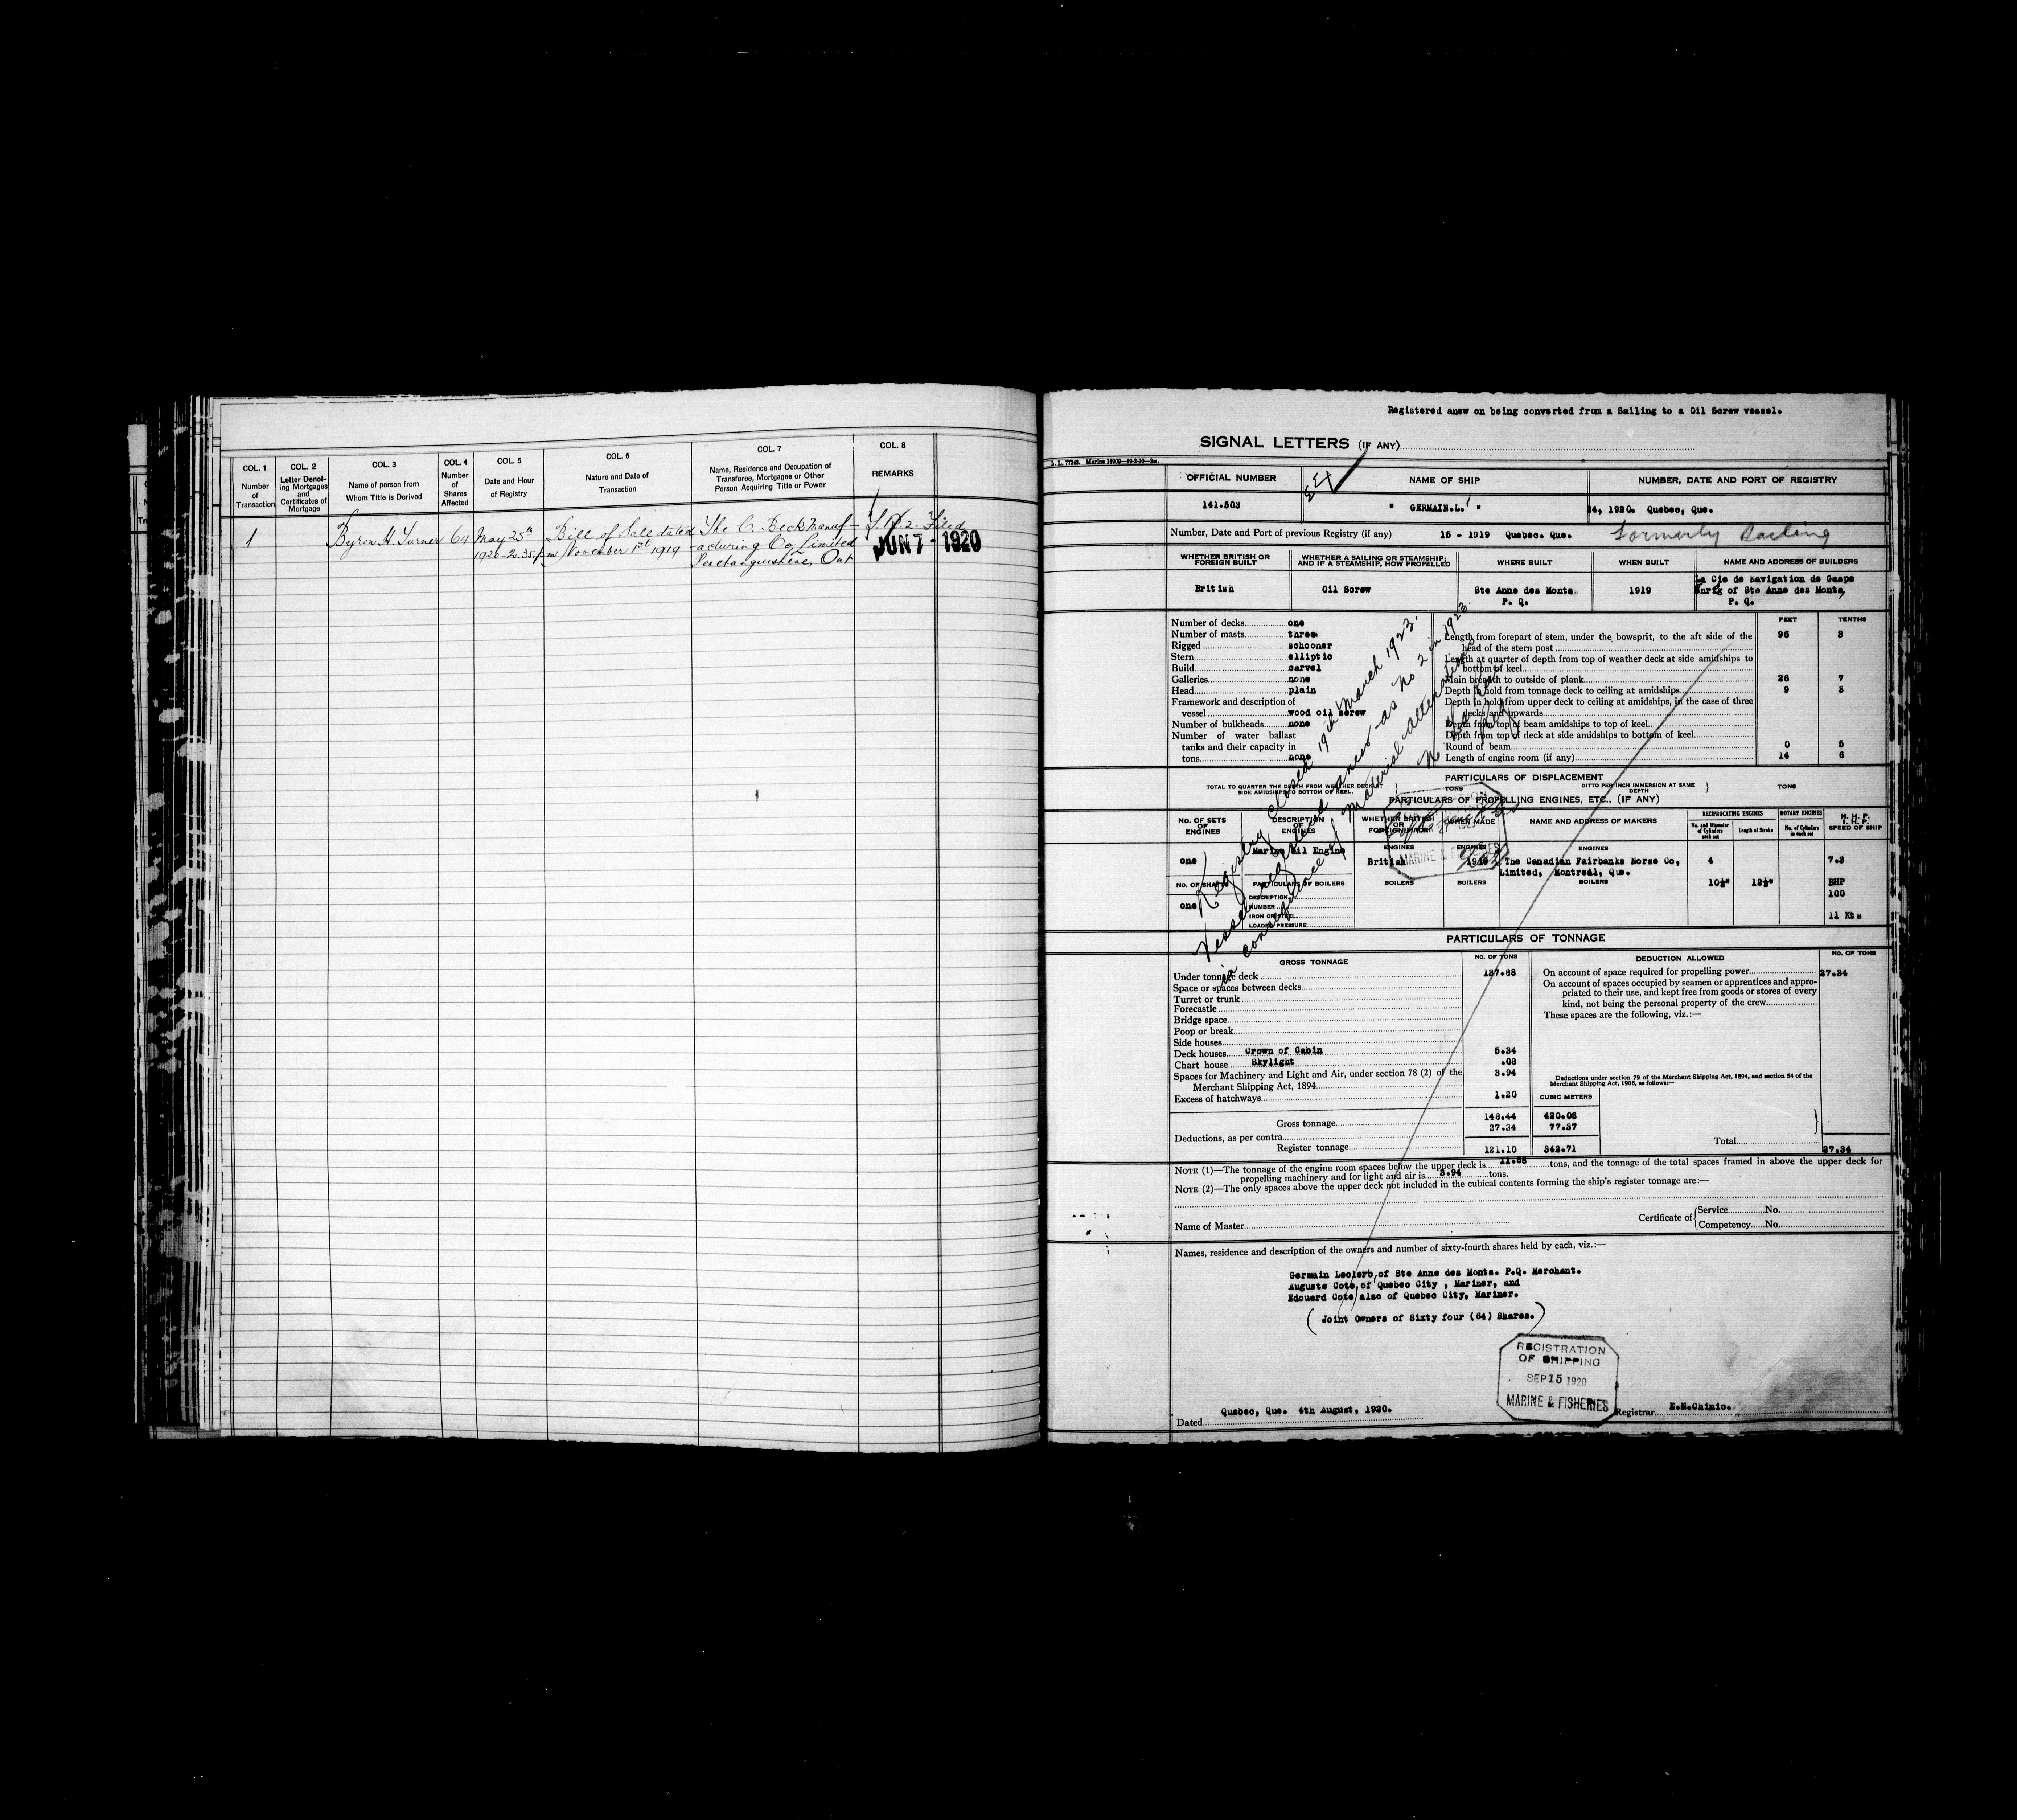 COL. 1
Number
of
Transaction
COL. 2
Letter Denot-
ing Mortgages
and
Certificates of
Mortgage
COL. 3
Name of person from
Whom Title is Derived
COL. 4
Number
of
Shares
Affected
COL. 5
Date and Hour
of Registry
COL. 6
Nature and Date of
Transaction
COL. 7
Name, Residence and Occupation of
Transferee, Mortgagee or Other
Person Acquiring Title or Power
COL. 8
REMARKS
1
Byron H. Turner
64
May 25th
1920-2.35.p.m
Bill of Sale dated
November 1st 1919
The C. Beck Manuf-
acturing Co Limited
Penetanguishene, Ont
Filed
JUN 7 - 1920
Registered anew on being converted from a Sailing to a Oil Screw vessel.
SIGNAL LETTERS (IF ANY)
L. L. 77243. Marine 16909—19-3-20—2M.
OFFICIAL NUMBER
NAME OF SHIP
NUMBER, DATE AND PORT OF REGISTRY
141.503
" GERMAIN.L. "
24, 1920. Quebec, Que.
Number, Date and Port of previous Registry (if any)
15 - 1919 Quebec. Que.
Formerly Sailing
WHETHER BRITISH OR
FOREIGN BUILT
WHETHER A SAILING OR STEAMSHIP;
AND IF A STEAMSHIP, HOW PROPELLED
WHERE BUILT
WHEN BUILT
NAME AND ADDRESS OF BUILDERS
British
Oil Screw
Ste Anne des Monts.
P. Q.
1919
La Cie de Navigation de Gaspe
Enrg of Ste Anne des Monts,
P. Q.
Number of decks one
Number of masts three
Rigged schooner
Stern elliptic
Build carvel
Galleries none
Head plain
Framework and description of
vessel wood oil screw
Number of bulkheads none
Number of water ballast
tanks and their capacity in
tons none
FEET
TENTHS
Length from forepart of stem, under the bowsprit, to the aft side of the
head of the stern post 96 3
Length at quarter of depth from top of weather deck at side amidships to
bottom of keel
Main breadth to outside of plank 26 7
Depth in hold from tonnage deck to ceiling at amidships 9 3
Depth in hold from upper deck to ceiling at amidships, in the case of three
decks and upwards
Depth from top of beam amidships to top of keel
Depth from top of deck at side amidships to bottom of keel
Round of beam 0 5
Length of engine room (if any) 14 6
Registry closed 19th March 1923.
Vessel registered anew as No 2 in 1923
in consequence of material alterations
PARTICULARS OF DISPLACEMENT
TOTAL TO QUARTER THE DEPTH FROM WEATHER DECK AT
SIDE AMIDSHIPS TO BOTTOM OF KEEL.
TONS
DITTO PER INCH IMMERSION AT SAME
DEPTH
TONS
PARTICULARS OF PROPELLING ENGINES, ETC., (IF ANY)
NO. OF SETS
OF
ENGINES
DESCRIPTION
OF
ENGINES
WHETHER BRITISH
OR
FOREIGN MADE
WHEN MADE
NAME AND ADDRESS OF MAKERS
RECIPROCATING ENGINES
No. and Diameter
of Cylinders
each set
Length of Stroke
ROTARY ENGINES
No. of Cylinders
in each set
N. H. P.
I. H. P.
SPEED OF SHIP
ENGINES
ENGINES
ENGINES
one
Marine Oil Engine
British
The Canadian Fairbanks Morse Co,
Limited, Montreal, Que.
4
10½"
12½"
7.3
BHP
100
11 Kts
NO. OF SHAFTS
one
PARTICULARS OF BOILERS
DESCRIPTION
NUMBER
IRON OR STEEL
LOADED PRESSURE
BOILERS
BOILERS
BOILERS
MARINE & FISHERIES
PARTICULARS OF TONNAGE
GROSS TONNAGE
NO. OF TONS
DEDUCTION ALLOWED
NO. OF TONS
Under tonnage deck 137.88
Space or spaces between decks
Turret or trunk
Forecastle
Bridge space
Poop or break
Side houses
Deck houses Crown of Cabin 5.34
Chart house Skylight .08
Spaces for Machinery and Light and Air, under section 78 (2) of the 3.94
Merchant Shipping Act, 1894
Excess of hatchways 1.20
Gross tonnage 148.44 420.08
Deductions, as per contra 27.34 77.37
Register tonnage 121.10 342.71
On account of space required for propelling power 27.34
On account of spaces occupied by seamen or apprentices and appro-
priated to their use, and kept free from goods or stores of every
kind, not being the personal property of the crew
These spaces are the following, viz.:—
Deductions under section 79 of the Merchant Shipping Act, 1894, and section 54 of the
Merchant Shipping Act, 1906, as follows:—
CUBIC METERS
Total 27.34
NOTE (1)—The tonnage of the engine room spaces below the upper deck is 11.68 tons, and the tonnage of the total spaces framed in above the upper deck for
propelling machinery and for light and air is 3.94 tons.
NOTE (2)—The only spaces above the upper deck not included in the cubical contents forming the ship's register tonnage are:—
Name of Master
Certificate of
Service No.
Competency No.
Names, residence and description of the owners and number of sixty-fourth shares held by each, viz.:—
Germain Leclerc, of Ste Anne des Monts. P.Q. Merchant.
Auguste Cote, of Quebec City , Mariner, and
Edouard Cote, also of Quebec City, Mariner.
( Joint Owners of Sixty four (64) Shares. )
REGISTRATION
OF SHIPPING
SEP 15 1920
MARINE & FISHERIES
Dated Quebec, Que. 4th August, 1920.
Registrar E.N.Chinic.